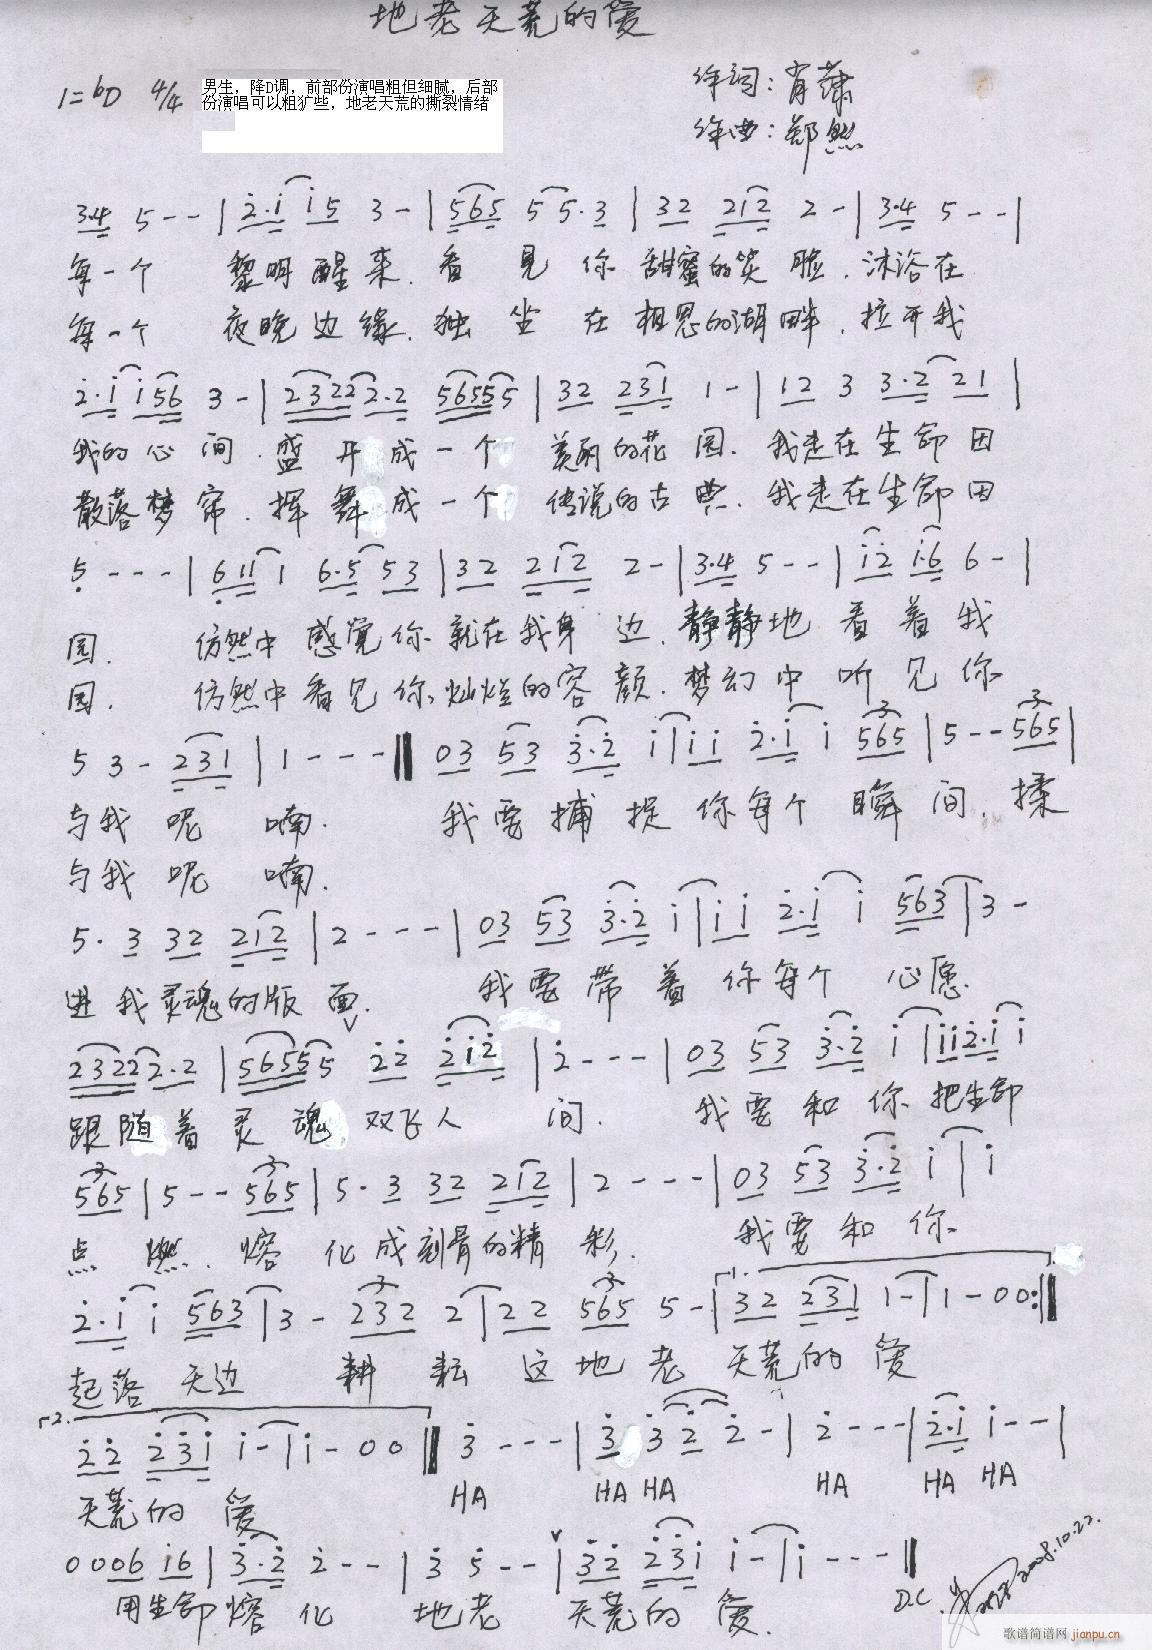 地老天荒的爱
1=bD 4/4
男生，降D调，前部份演唱粗但细腻，后部
份演唱可以粗犷些，地老天荒的撕裂情绪
作词：肖潇
作曲：郑然
3·4 5 - - | 2·1 1 5 3 - | 565 5 5·3 | 32 212 2 - | 3·4 5 - - |
每一个 黎明醒来.看见你甜蜜的笑脸.沐浴在
每一个 夜晚边缘.独坐在相思的湖畔.拉开我
2·1 156 3 - | 2322 2·2 56555 | 32 231 1 - | 12 3 3·2 21 |
我的心间.盛开成一个 美丽的花园.我走在生命田
散落梦帘.挥舞成一个 传说的古典.我走在生命田
5 - - - | 611 1 6·5 53 | 32 212 2 - | 3·4 5 - - | 12 1·6 6 - |
园. 仿然中感觉你就在我身边.静静地看着我
园. 仿然中看见你灿烂的容颜.梦幻中听见你
5 3 - 231 | 1 - - - || 03 53 3·2 1 | 11 2·1 1 565 | 5 - - 565 |
与我呢喃. 我要捕捉你每个瞬间.揉
与我呢喃.
5·3 32 212 | 2 - - - | 03 53 3·2 1 | 11 2·1 1 563 | 3 -
进我灵魂的版面. 我要带着你每个心愿.
2322 2·2 | 56555 22 212 | 2 - - - | 03 53 3·2 1 | 112·1 1
跟随着灵魂双飞人间. 我要和你把生命
565 | 5 - - 565 | 5·3 32 212 | 2 - - - | 03 53 3·2 1 | 1
点燃.熔化成刻骨的精彩. 我要和你
2·1 1 563 | 3 - 232 2 | 22 565 5 - | 1. 32 231 1 - | 1 - 0 0 :||
起落天边 耕耘这地老天荒的爱
2. 22 231 1 - | 1 - 0 0 || 3 - - - | 3 3 2 2 - | 2 - - - | 2·1 1 - - |
天荒的爱 HA HA HA HA HA HA
0 0 06 16 | 3·2 2 - - | 3 5 - - | 32 231 1 - | 1 - - - ||
用生命熔化 地老天荒的爱.
D.C. 2008.10.22.
歌谱简谱网
jianpu.cn